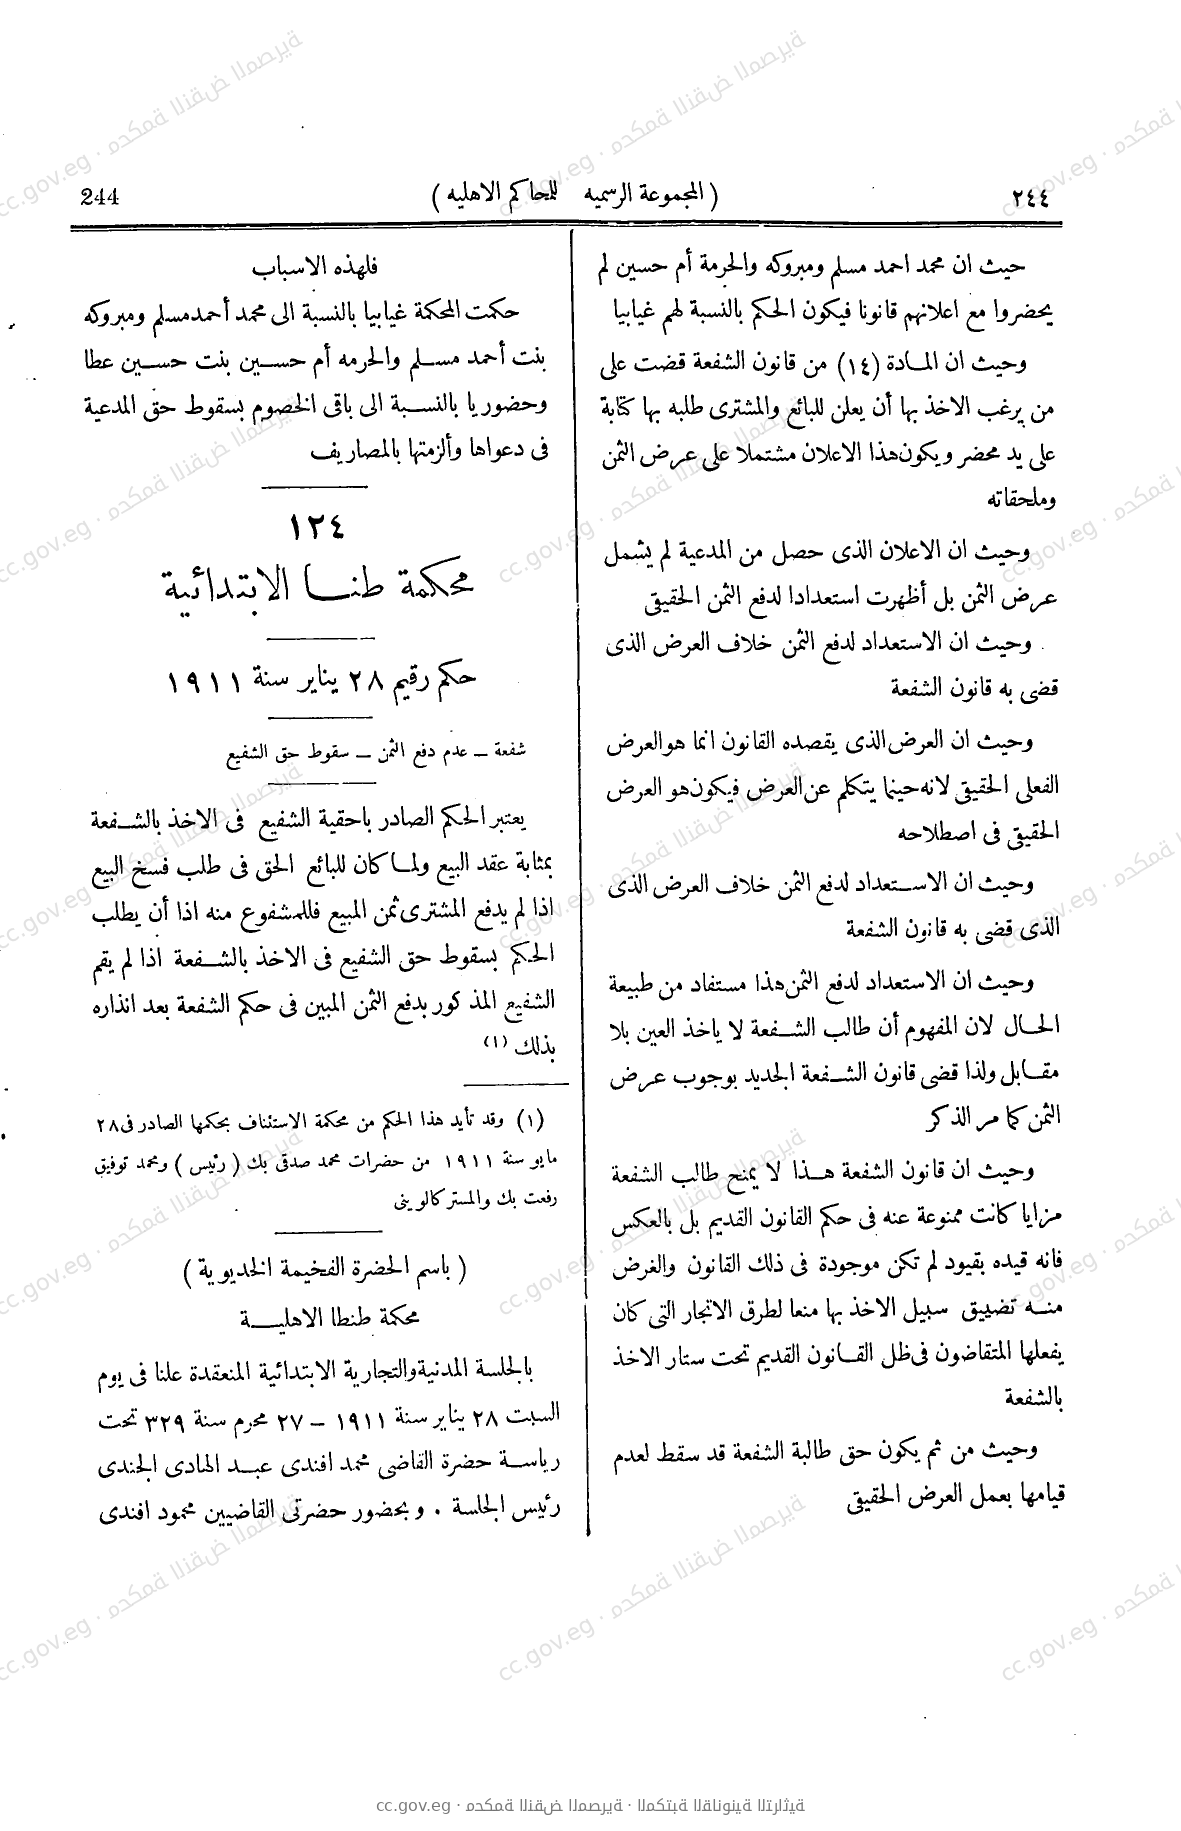 ٢٤٤
( المجموعة الرسميه للمحاكم الاهليه )
244
حيث ان محمد احمد مسلم ومبروكه والحرمة أم حسين لم
يحضروا مع اعلانهم قانونا فيكون الحكم بالنسبة لهم غيابيا
وحيث ان المادة (١٤) من قانون الشفعة قضت على
من يرغب الاخذ بها أن يعلن للبائع والمشترى طلبه بها كتابة
على يد محضر ويكون هذا الاعلان مشتملا على عرض الثمن
وملحقاته
وحيث ان الاعلان الذى حصل من المدعية لم يشمل
عرض الثمن بل أظهرت استعدادا لدفع الثمن الحقيقى
وحيث ان الاستعداد لدفع الثمن خلاف العرض الذى
قضى به قانون الشفعة
وحيث ان العرض الذى يقصده القانون انما هو العرض
الفعلى الحقيقى لانه حينما يتكلم عن العرض فيكون هو العرض
الحقيقى فى اصطلاحه
وحيث ان الاستعداد لدفع الثمن خلاف العرض الذى
الذى قضى به قانون الشفعة
وحيث ان الاستعداد لدفع الثمن هذا مستفاد من طبيعة
الحال لان المفهوم أن طالب الشفعة لا ياخذ العين بلا
مقابل ولذا قضى قانون الشفعة الجديد بوجوب عرض
الثمن كما مر الذكر
وحيث ان قانون الشفعة هذا لا يمنح طالب الشفعة
مزايا كانت ممنوعة عنه فى حكم القانون القديم بل بالعكس
فانه قيده بقيود لم تكن موجودة فى ذلك القانون والغرض
منه تضييق سبيل الاخذ بها منعا لطرق الاتجار التى كان
يفعلها المتقاضون فى ظل القانون القديم تحت ستار الاخذ
بالشفعة
وحيث من ثم يكون حق طالبة الشفعة قد سقط لعدم
قيامها بعمل العرض الحقيقى
فلهذه الاسباب
حكمت المحكمة غيابيا بالنسبة الى محمد أحمد مسلم ومبروكه
بنت أحمد مسلم والحرمه أم حسين بنت حسين عطا
وحضوريا بالنسبة الى باقى الخصوم بسقوط حق المدعية
فى دعواها وألزمتها بالمصاريف
١٢٤
محكمة طنا الابتدائية
حكم رقيم ٢٨ يناير سنة ١٩١١
شفعة ــ عدم دفع الثمن ــ سقوط حق الشفيع
يعتبر الحكم الصادر باحقية الشفيع فى الاخذ بالشفعة
بمثابة عقد البيع ولما كان للبائع الحق فى طلب فسخ البيع
اذا لم يدفع المشترى ثمن المبيع فللمشفوع منه اذا أن يطلب
الحكم بسقوط حق الشفيع فى الاخذ بالشفعة اذا لم يقم
الشفيع المذكور بدفع الثمن المبين فى حكم الشفعة بعد انذاره
بذلك (١)
(١) وقد تأيد هذا الحكم من محكمة الاستئناف بحكمها الصادر فى ٢٨
مايو سنة ١٩١١ من حضرات محمد صدقى بك ( رئيس ) ومحمد توفيق
رفعت بك والمستر كالوينى
( باسم الحضرة الفخيمة الخديوية )
محكمة طنطا الاهلية
بالجلسة المدنية والتجارية الابتدائية المنعقدة علنا فى يوم
السبت ٢٨ يناير سنة ١٩١١ – ٢٧ محرم سنة ٣٢٩ تحت
رياسة حضرة القاضى محمد افندى عبد الهادى الجندى
رئيس الجلسة . وبحضور حضرتى القاضيين محمود افندى
cc.gov.eg · محكمة النقض المصرية · المكتبة القانونية التراثية